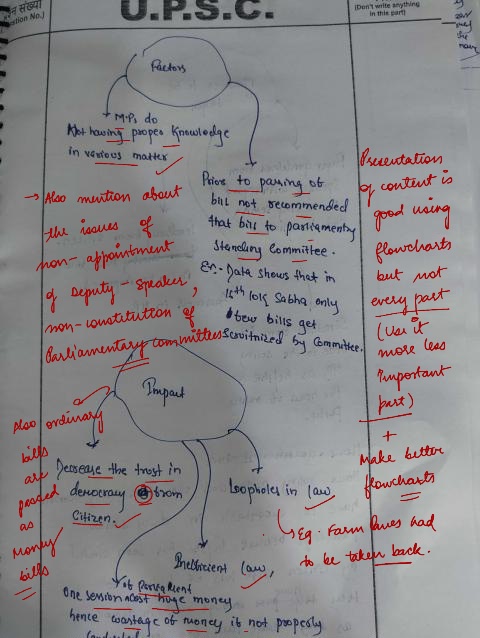 प्रश्न संख्या
(Question No.)
U.P.S.C.
(Don't write anything
in this part)
Factors
M.Ps do
Not having proper knowledge
in various matter
Prior to passing of
bill not recommended
that bill to parliamentry
Standing Committee.
Ex:- Data shows that in
loksabha only
few bills get
Scrutinized by Committee.
→ Also mention about
the issues of
non-appointment
of Deputy-Speaker,
non-constitution of
Parliamentary committees
Presentation
of content is
good using
flowcharts
but not
every part
(use it
more less
important
part)
+
Make better
flowcharts
Impact
Also ordinary
bills
are
passed
as
Money
bills
Decrease the trust in
democracy from
Citizen.
Loopholes in law
Eg. Farm laws had
to be taken back.
Inefficient law,
of parliament
One session cost huge money
hence wastage of money it not properly